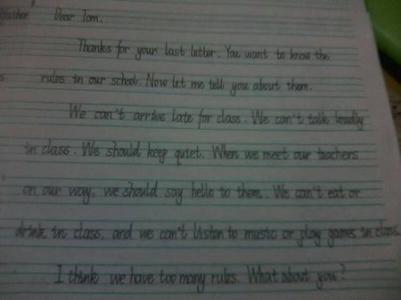 Dear Tom.
Thanks for your last letter. You want to know the
rules in our school. Now let me tell you about them.
We can't arrive late for class. We can't talk loudly
in class. We should keep quiet. When we meet our teachers
on our way, we should say hello to them. We can't eat or
drink in class, and we can't listen to music or play games in class.
I think we have too many rules. What about you?